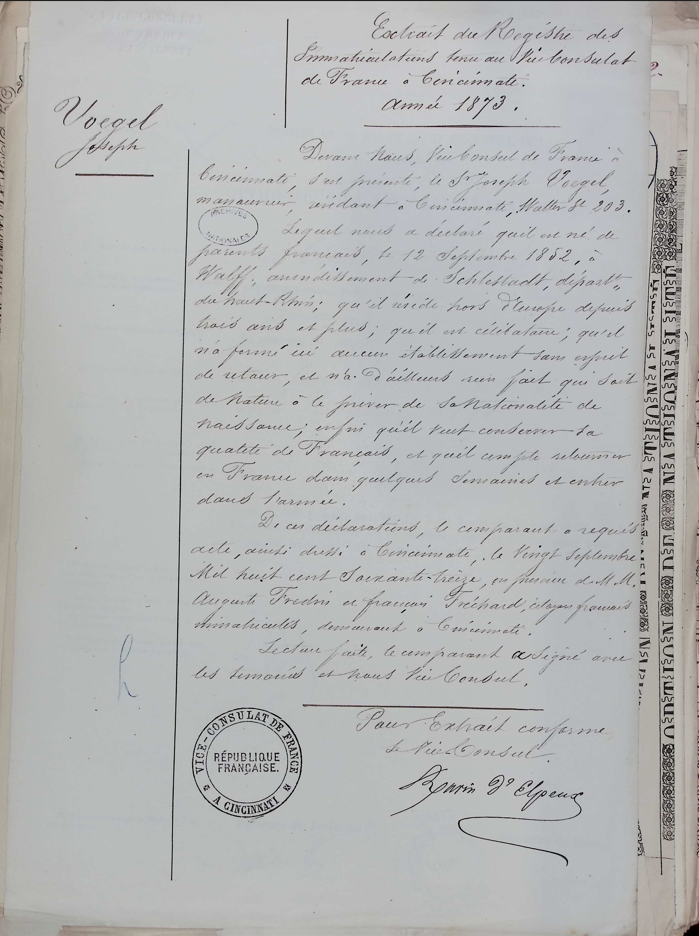 Extrait du Registre des
Immatriculations tenu au Vice Consulat
de France à Cincinnati.
année 1873.
Voegel
Joseph
Devant Nous, Vice Consul de France à
Cincinnati, s'est présenté, le Sr Joseph Voegel,
manœuvrier, résidant à Cincinnati, Walter St 203.
Lequel nous a déclaré qu'il est né de
parents français, le 12 Septembre 1852, à
Walff, arrondissement de Schlestadt, départt
du haut-Rhin; qu'il réside hors d'Europe depuis
trois ans et plus; qu'il est célibataire; qu'il
n'a formé ici aucun établissement sans esprit
de retour, et n'a d'ailleurs rien fait qui soit
de Nature à le priver de sa Nationalité de
Naissance; enfin qu'il veut conserver sa
qualité de Français, et qu'il compte retourner
en France dans quelques semaines et entrer
dans l'armée.
De ces déclarations, le comparant a requis
acte, ainsi dressé à Cincinnati, le Vingt Septembre
Mil huit cent Soixante-treize, en présence de M.M.
Auguste Fredin et françois Tréhard, citoyens français
immatriculés, demeurant à Cincinnati.
Lecture faite, le comparant a signé avec
les témoins et nous Vice Consul.
Pour Extrait conforme
Le Vice Consul.
ARCHIVES
NATIONALES
VICE-CONSULAT DE FRANCE
RÉPUBLIQUE
FRANÇAISE.
A CINCINNATI
OPTION DE NATIONALITÉ